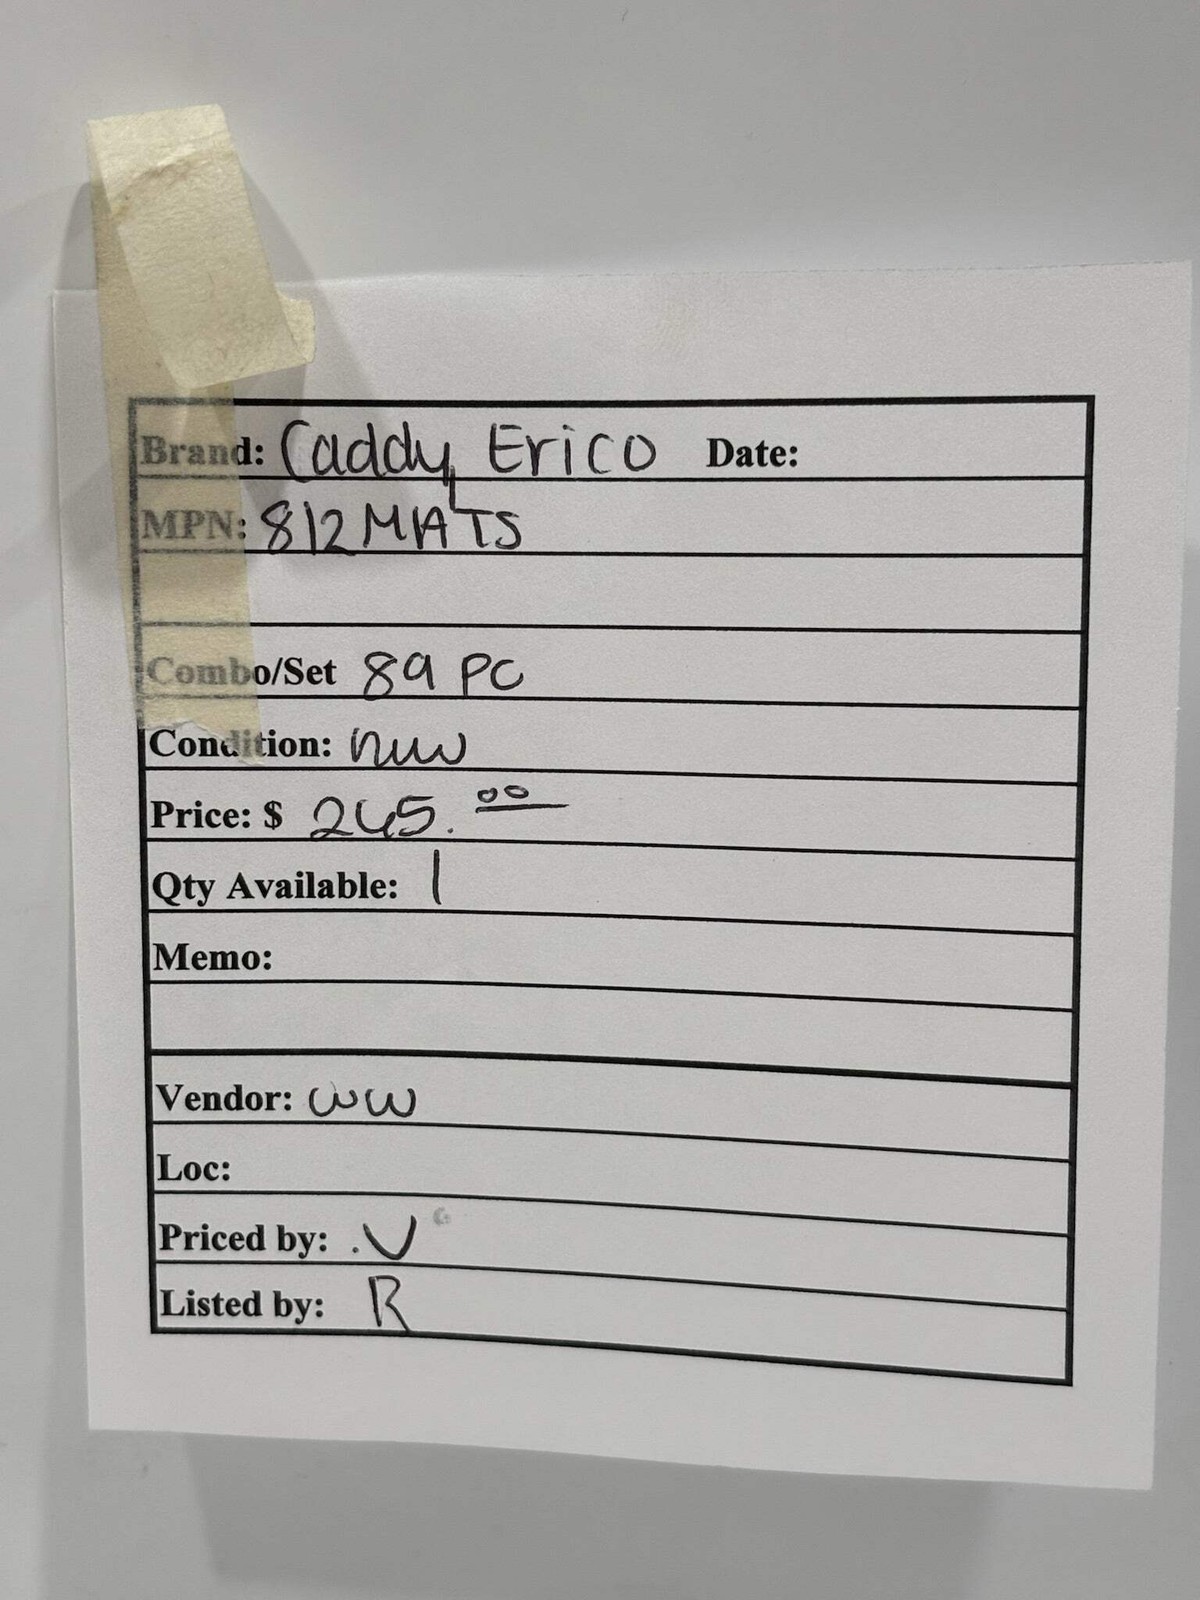 Brand: Caddy Erico Date:
MPN: 812MATS
Combo/Set 89 PC
Condition: new
Price: $ 265.00
Qty Available: 1
Memo:
Vendor: WW
Loc:
Priced by: .V
Listed by: R